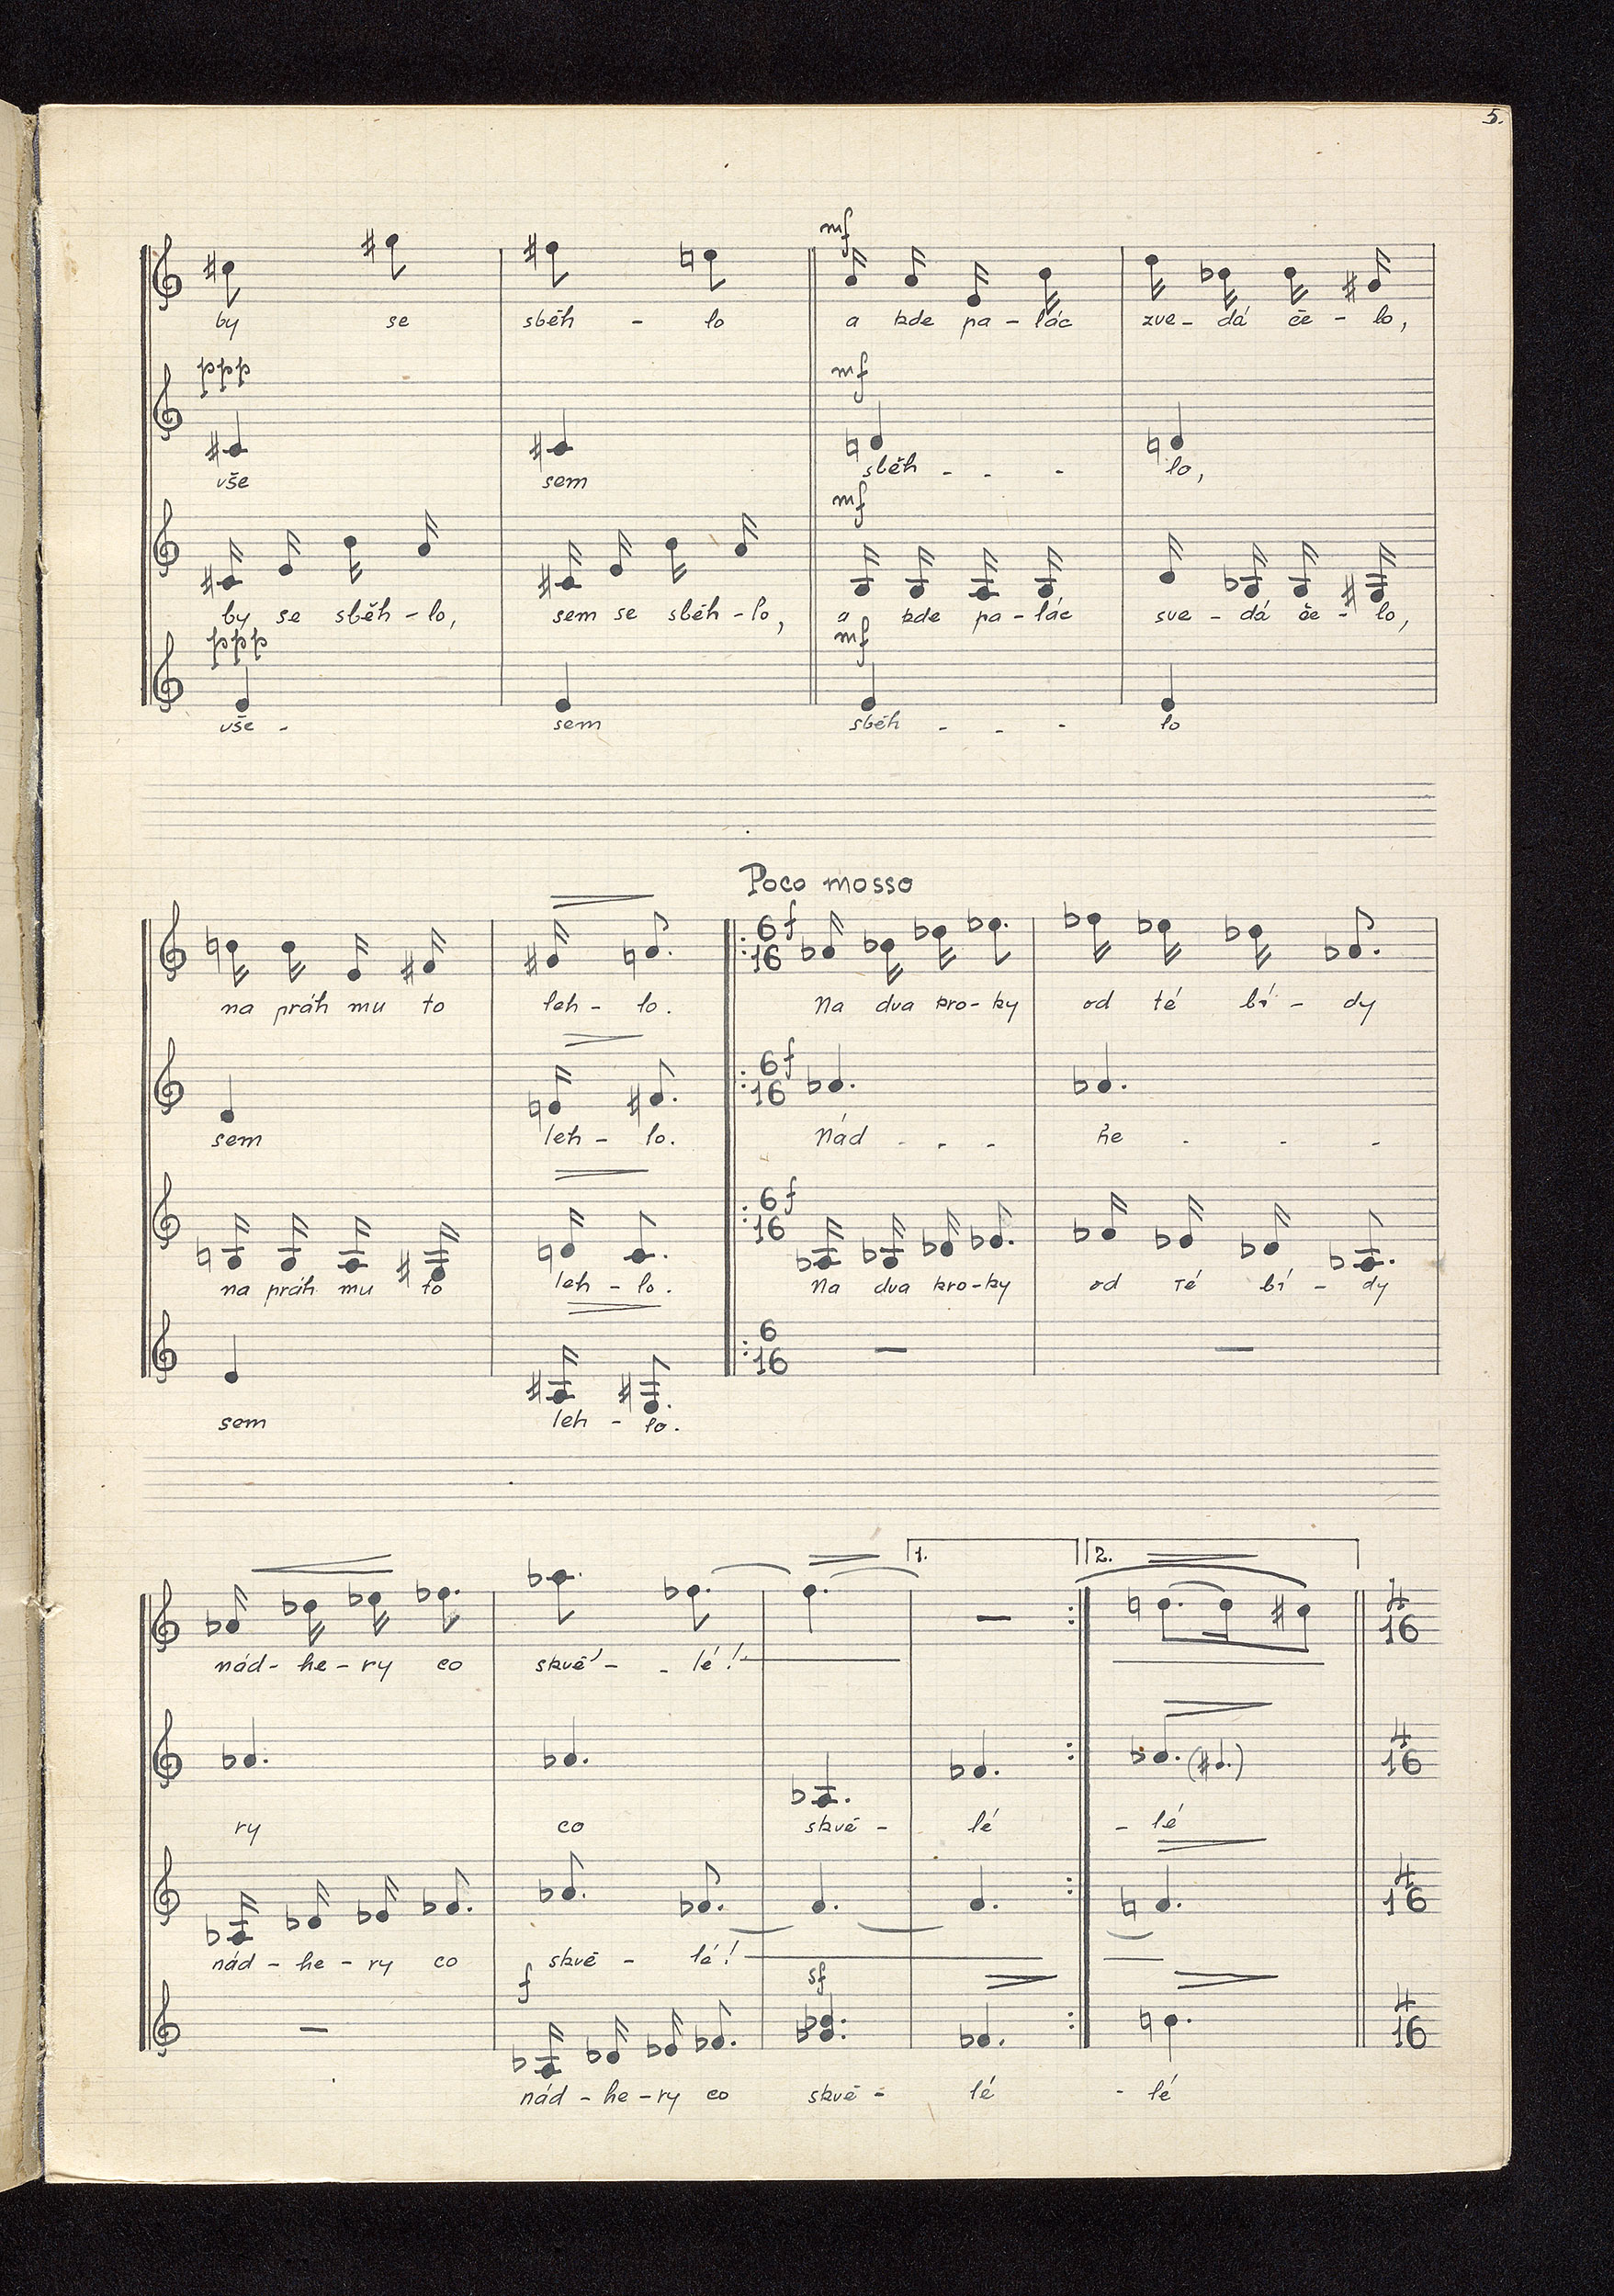 5.
mf
by se sběh - lo a kde pa - lác zve - dá če - lo,
ppp mf
vše sem sběh - - - lo,
mf
by se sběh - lo, sem se sběh - lo, a kde pa - lác sve - dá če - lo,
ppp mf
vše - sem sběh - - - lo
Poco mosso
6 f
16
na práh mu to leh - lo. Na dva kro - ky od té bí - dy
6 f
16
sem leh - lo. Nád - - - he - - -
6 f
16
na práh mu to leh - lo. Na dva kro - ky od té bí - dy
6
16
sem leh - lo.
1. 2.
4
16
nád - he - ry co skvě - - lé!
4
16
ry co skvě - lé - lé
4
16
nád - he - ry co skvě - lé!
f sf
4
16
nád - he - ry co skvě - lé - lé